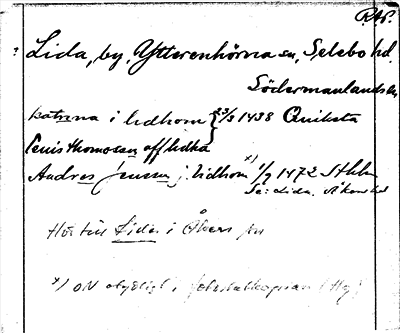 RAP.
? Lida, by, Ytterenhörna sn, Selebo hd.
Södermanlands län
katrina i lidhom } 23/3 1438 Quiksta
Penis thomosen aff lidha
Andres Jenssen j. lidhom x) 1/7 1472 Sthlm
Se: Lida. Åkers hd
Hör till Lida i Åkers sn
x) ON otydligt i fotostatkopian (Hg)